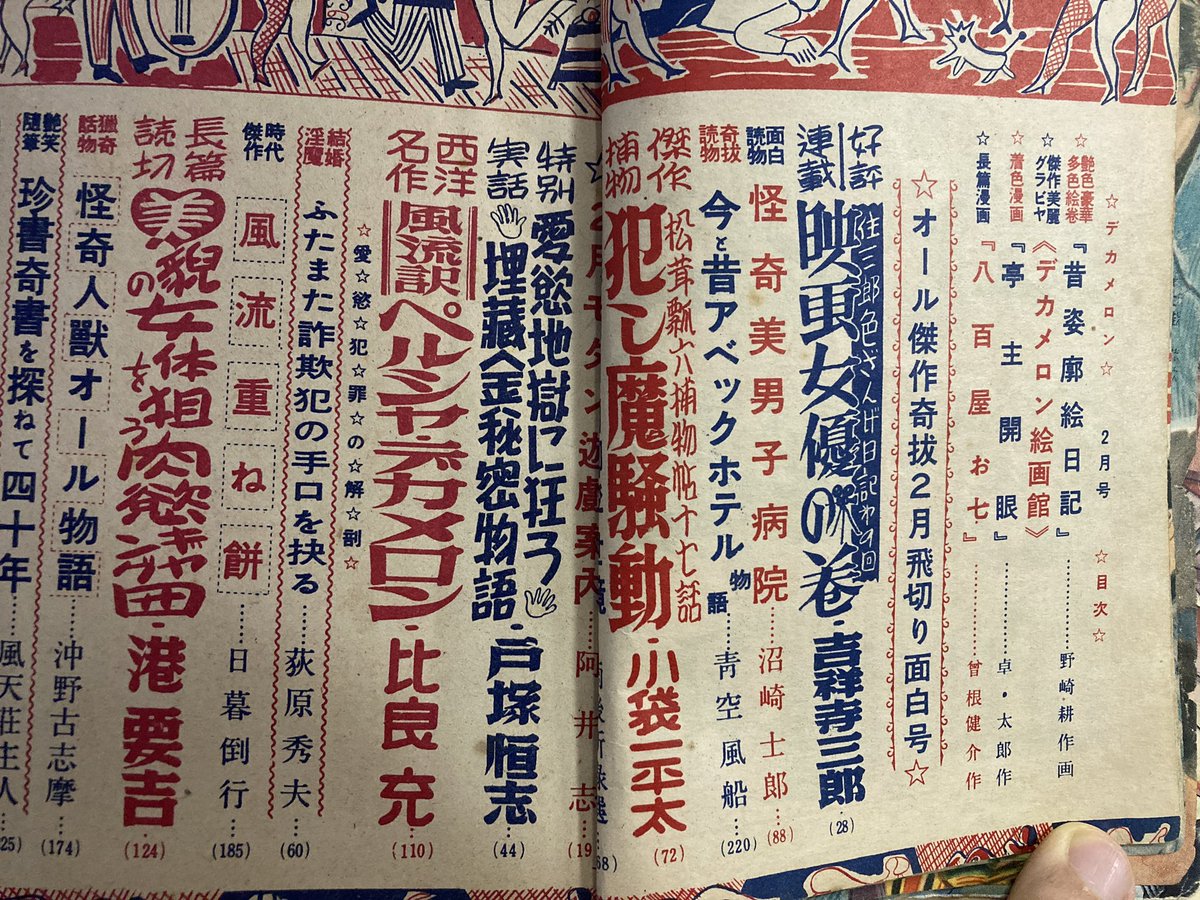 ☆デカメロン☆ 2月号 ☆目次☆
☆艶色豪華多色絵巻『昔姿廓絵日記』……野崎・耕作画
☆傑作美麗グラビヤ《デカメロン絵画館》
☆着色漫画『亭主開眼』……卓・太郎作
☆長篇漫画『八百屋お七』……曾根健介作
☆オール傑作奇抜2月飛切り面白号☆
好評連載 三郎色ざんげ日記
映画女優の巻・吉祥寺三郎(28)
面白読物 怪奇美男子病院……沼崎士郎…(88)
奇抜読物 今と昔アベックホテル物語……青空風船…(220)
傑作捕物 松茸瓢六捕物帖十七話
犯し魔騒動・小袋一平太(72)
☆2月モダン 戯案内……阿井志…(19
特別実話 愛慾地獄に狂ろう
埋藏金秘密物語・戸塚恒志(44)
西洋名作 風流訳 ペルシヤ・デカメロン・比良充(110)
☆愛☆慾☆犯☆罪☆の☆解☆剖☆
結婚淫魔 ふたまた詐欺犯の手口を抉る……荻原秀夫…(60)
時代傑作 風流重ね餅……日暮倒行…(185)
長篇読切 美貌の女体を狙う肉慾ギャング団・港要吉(124)
獵奇話物 怪奇人獸オール物語……沖野古志摩…(174)
艶笑随筆 珍書奇書を探ねて四十年……風天荘主人…25)